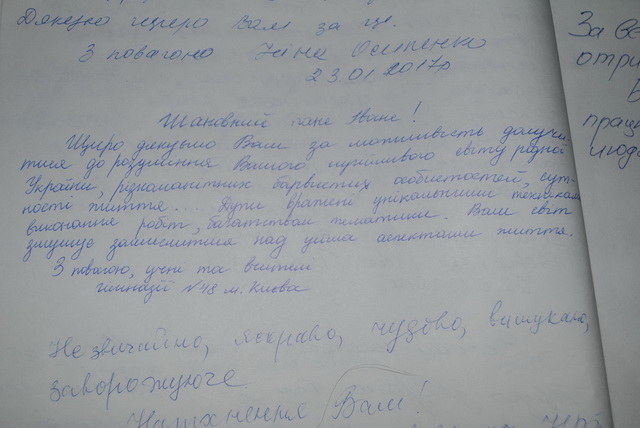 Дякуємо щиро Вам за це.
З повагою Ніна Осипенко
23.01.2017р
Шановний пане Іване!
Щиро дякуємо Вам за можливість долучи-
тися до розуміння Вашого чуйливого світу рідної
України, різноманітних барвистих особистостей, сут-
ності життя... Дуже вражені унікальними техніками
виконання робіт, багатством тематики. Ваш світ
змушує замислитися над усіма аспектами життя.
З повагою, учні та вчителі
гімназії №48 м. Києва
Незвичайно, яскраво, чудово, вишукано,
заворожуюче.
Натхнення Вам!
За
отри
В
праці
люди